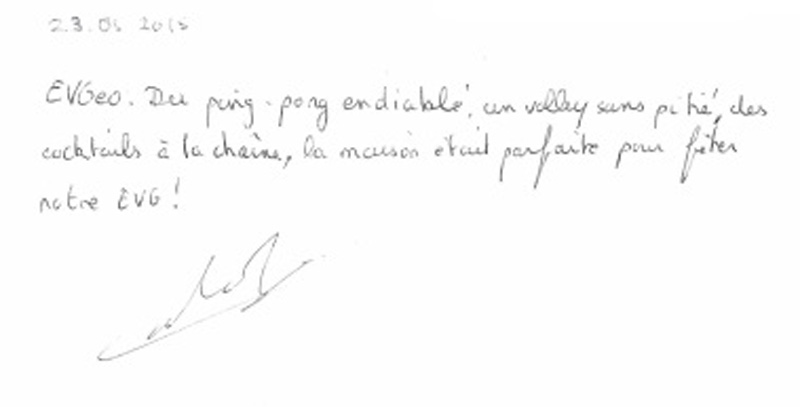 23.05 2015
EVGeo. Du ping-pong endiablé, un volley sans pitié, des
cocktails à la chaîne, la maison était parfaite pour fêter
notre EVG !